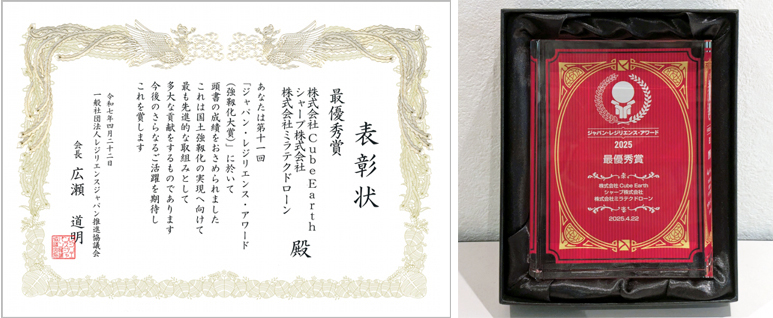 表彰状
最優秀賞
株式会社CubeEarth
シャープ株式会社
株式会社ミラテクドローン
殿
あなたは第十一回
「ジャパン・レジリエンス・アワード
(強靱化大賞)」に於いて
頭書の成績をおさめられました
これは国土強靱化の実現へ向けて
最も先進的な取組みとして
多大な貢献をするものであります
今後のさらなるご活躍を期待し
これを賞します
令和七年四月二十二日
一般社団法人レジリエンスジャパン推進協議会
会長 広瀬 道明
ジャパン・レジリエンス・アワード
2025
最優秀賞
株式会社 Cube Earth
シャープ株式会社
株式会社ミラテクドローン
2025.4.22